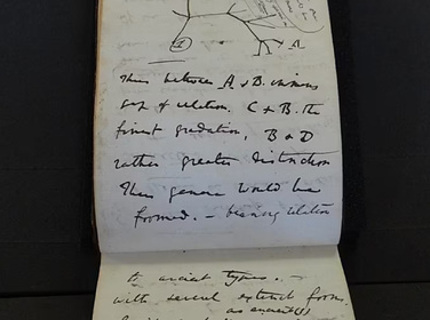 A
Thus between A & B. immens
gap of relation. C & B. the
finest gradation, B & D
rather greater distinction
Thus genera would be
formed. — bearing relation
to ancient types. —
with several extinct forms.
as ancient(1)